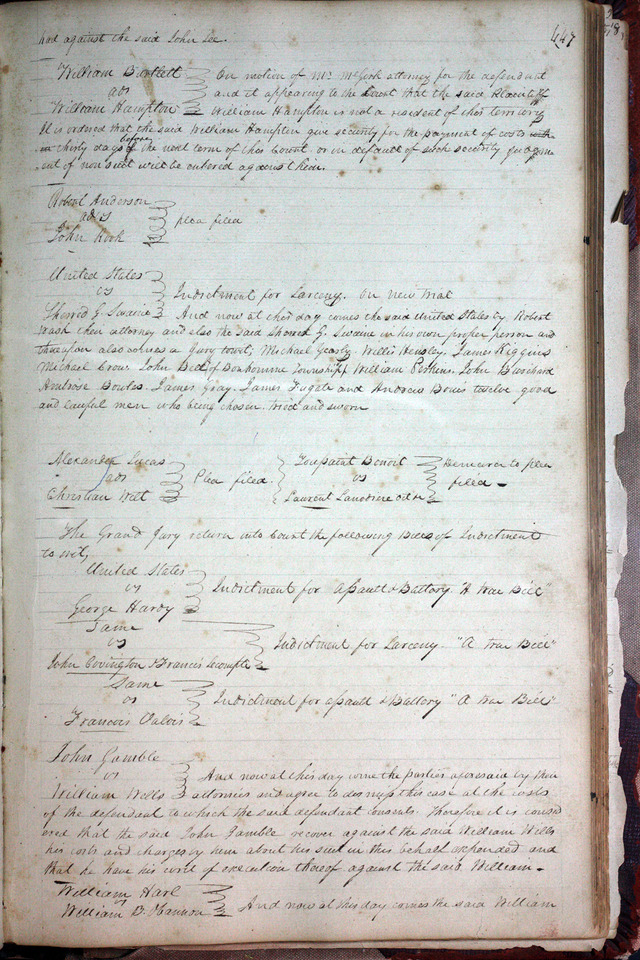 had against the said John Lee.
447
William Bartlett
ads
William Hampton
On motion of Mr McGirk attorney for the defendant
and it appearing to the Court that the said Plaintiff
William Hampton is not a resident of this territory
It is ordered that the said William Hampton give security for the payment of costs with
in thirty days before the next term of this Court or in default of such security judgm
ent of non suit will be entered against him.
Robert Anderson
ads
John Rook
plea filed
United States
vs
Sherrid G. Swaine
Indictment for Larceny. On new trial
And now at this day comes the said United States by Robert
Wash their attorney and also the said Sherrod G. Swaine in his own proper person and
thereupon also comes a Jury towit, Michael Willis Hensley. James Higgins
Michael Crow. John Bell of Bonhomme Township William Perkins. John Burchard
Ambrose Bowles. James Gray. James Fugate and Andrew twelve good
and lawful men who being chosen tried and sworn
Alexander Lucas
ads
Christian Witt
Plea filed.
Toussaint Benoit
vs
Laurent
Demurrer to plea
filed
The Grand Jury return into Court the following Bills of Indictment
to wit,
United States
vs
George Hardy
Indictment for assault & Battory "A true Bill"
Same
vs
John Covington & Francis Lecompte
Indictment for Larceny. "A true Bill"
Same
vs
Francois Valois
Indictment for assault & Battory "A true Bill"
John Gamble
vs
William Wells
And now at this day come the parties aforesaid by their
attornies and agree to dismiss this case at the costs
of the defendant to which the said defendant consents. Therefore it is consid
ered that the said John Gamble recover against the said William Wells
his costs and charges by him about his suit in this behalf expended and
that he have his writ of execution thereof against the said William
William Harl
vs
William B. Hannon
And now at this day comes the said William